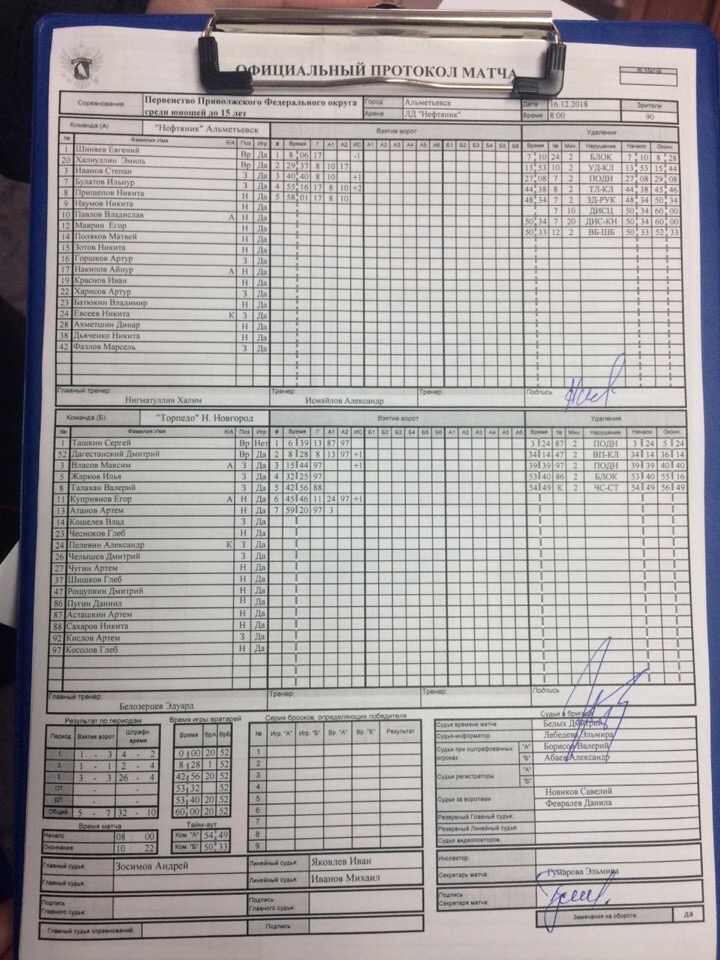 ОФИЦИАЛЬНЫЙ ПРОТОКОЛ МАТЧА
№ Матча
Соревнование Первенство Приволжского Федерального округа среди юношей до 15 лет Город Альметьевск Дата 16.12.2018 Зрители
Арена ЛД "Нефтяник" Время 8:00 90
Команда (А) "Нефтяник" Альметьевск Взятие ворот Удаления
№ Фамилия Имя К/А Поз Игр # Время Г А1 А2 ИС Б1 Б2 Б3 Б4 Б5 Б6 А1 А2 А3 А4 А5 А6 Время № Мин. Нарушение Начало Окон.
1 Шиняев Евгений Вр Да 1 8 06 17 -1 7 10 24 2 БЛОК 7 10 8 28
20 Халиуллин Эмиль Вр Да 2 29 37 8 10 17 13 53 10 2 УД-КЛ 13 53 15 44
3 Иванов Степан З Да 3 40 40 8 10 +1 27 08 7 2 ПОДН 27 08 29 08
7 Булатов Ильнур З Да 4 55 16 17 8 10 +2 44 38 8 2 ТЛ-КЛ 44 38 45 46
8 Прищепов Никита Н Да 5 58 01 17 8 10 48 34 7 2 ЗД-РУК 48 34 50 34
9 Наумов Никита Н Да 7 10 ДИСЦ 50 34 60 00
10 Павлов Владислав А Н Да 50 34 7 20 ДИС-КН 50 34 60 00
12 Маврин Егор Н Да 50 33 12 2 ВБ-ШБ 50 33 52 33
14 Поляков Матвей Н Да
15 Зотов Никита Н Да
16 Горшков Артур З Да
17 Накипов Айнур А Н Да
19 Краснов Иван Н Да
22 Харисов Артур З Да
23 Батюкин Владимир Н Да
24 Евсеев Никита К З Да
28 Ахметшин Динар Н Да
38 Дьяченко Никита Н Да
42 Фазлов Марсель З Да
Главный тренер: Нигматуллин Халим Тренер: Исмайлов Александр Тренер: Подпись
Команда (Б) "Торпедо" Н. Новгород Взятие ворот Удаления
№ Фамилия Имя К/А Поз Игр # Время Г А1 А2 ИС Б1 Б2 Б3 Б4 Б5 Б6 А1 А2 А3 А4 А5 А6 Время № Мин. Нарушение Начало Окон.
1 Ташкин Сергей Вр Нет 1 6 39 13 87 97 3 24 87 2 ПОДН 3 24 5 24
52 Дагестанский Дмитрий Вр Да 2 8 28 8 13 97 +1 34 14 47 2 ВП-КЛ 34 14 36 14
3 Власов Максим А З Да 3 15 44 97 +1 39 39 97 2 ПОДН 39 39 40 40
5 Жарков Илья З Да 4 32 25 97 53 40 86 2 БЛОК 53 40 55 16
8 Талахан Валерий З Да 5 42 56 88 54 49 К 2 ЧС-СТ 54 49 56 49
11 Куприянов Егор А Н Да 6 45 46 11 24 97 +1
13 Атанов Артем Н Да 7 59 20 97 3
14 Кошелев Влад З Да
23 Чесноков Глеб Н Да
24 Пелевин Александр К З Да
26 Челышев Дмитрий З Да
27 Чугин Артем Н Да
37 Шишков Глеб Н Да
47 Рощупкин Дмитрий Н Да
86 Пугин Даниил Н Да
87 Асташкин Артем Н Да
88 Сахаров Никита Н Да
92 Кислов Артем З Да
97 Косолов Глеб Н Да
Главный тренер: Белозерцев Эдуард Тренер: Тренер: Подпись
Результат по периодам
Период Взятие ворот Штрафн. время
1. 1 - 3 4 - 2
2. 1 - 1 2 - 4
3. 3 - 3 26 - 4
ОТ - -
БП - -
Общий 5 - 7 32 - 10
Время матча
Начало 08 : 00
Окончание 10 22
Время игры вратарей
Время ВрА ВрБ
0 00 20 52
8 28 1 52
42 56 20 52
53 32 52
53 40 20 52
60 00 20 52
Тайм-аут
Ком. "А" 54 49
Ком. "Б" 50 33
Серия бросков, определяющих победителя
№ Игр. "А" Игр. "Б" Вр. "А" Вр. "Б" Результат
1
2
3
4
5
6
7
8
9
Судьи в бригаде
Судья времени матча Белых Дмитрий
Судья-информатор Лебедева Эльмира
Судьи при оштрафованных игроках "А" Борисов Валерий
"Б" Абаев Александр
Судьи регистраторы "А"
"Б"
Судьи за воротами Новиков Савелий
Февралев Данила
Резервный Главный судья:
Резервный Линейный судья:
Судья видеоповторов:
Главный судья: Зосимов Андрей Линейный судья: Яковлев Иван
Главный судья: Линейный судья: Иванов Михаил
Инспектор:
Секретарь матча: Гумарова Эльмира
Подпись Главного судьи: Подпись Главного судьи:
Подпись Секретаря матча:
Главный судья соревнований: Подпись:
Замечания на обороте: ДА